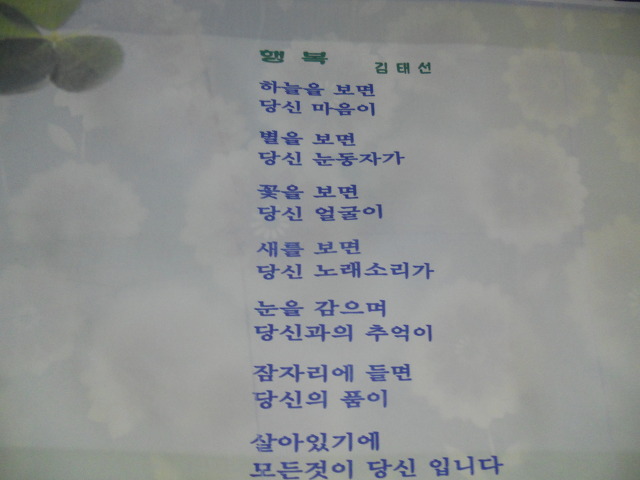 행 복
김 태 선
하늘을 보면
당신 마음이
별을 보면
당신 눈동자가
꽃을 보면
당신 얼굴이
새를 보면
당신 노래소리가
눈을 감으며
당신과의 추억이
잠자리에 들면
당신의 품이
살아있기에
모든것이 당신 입니다